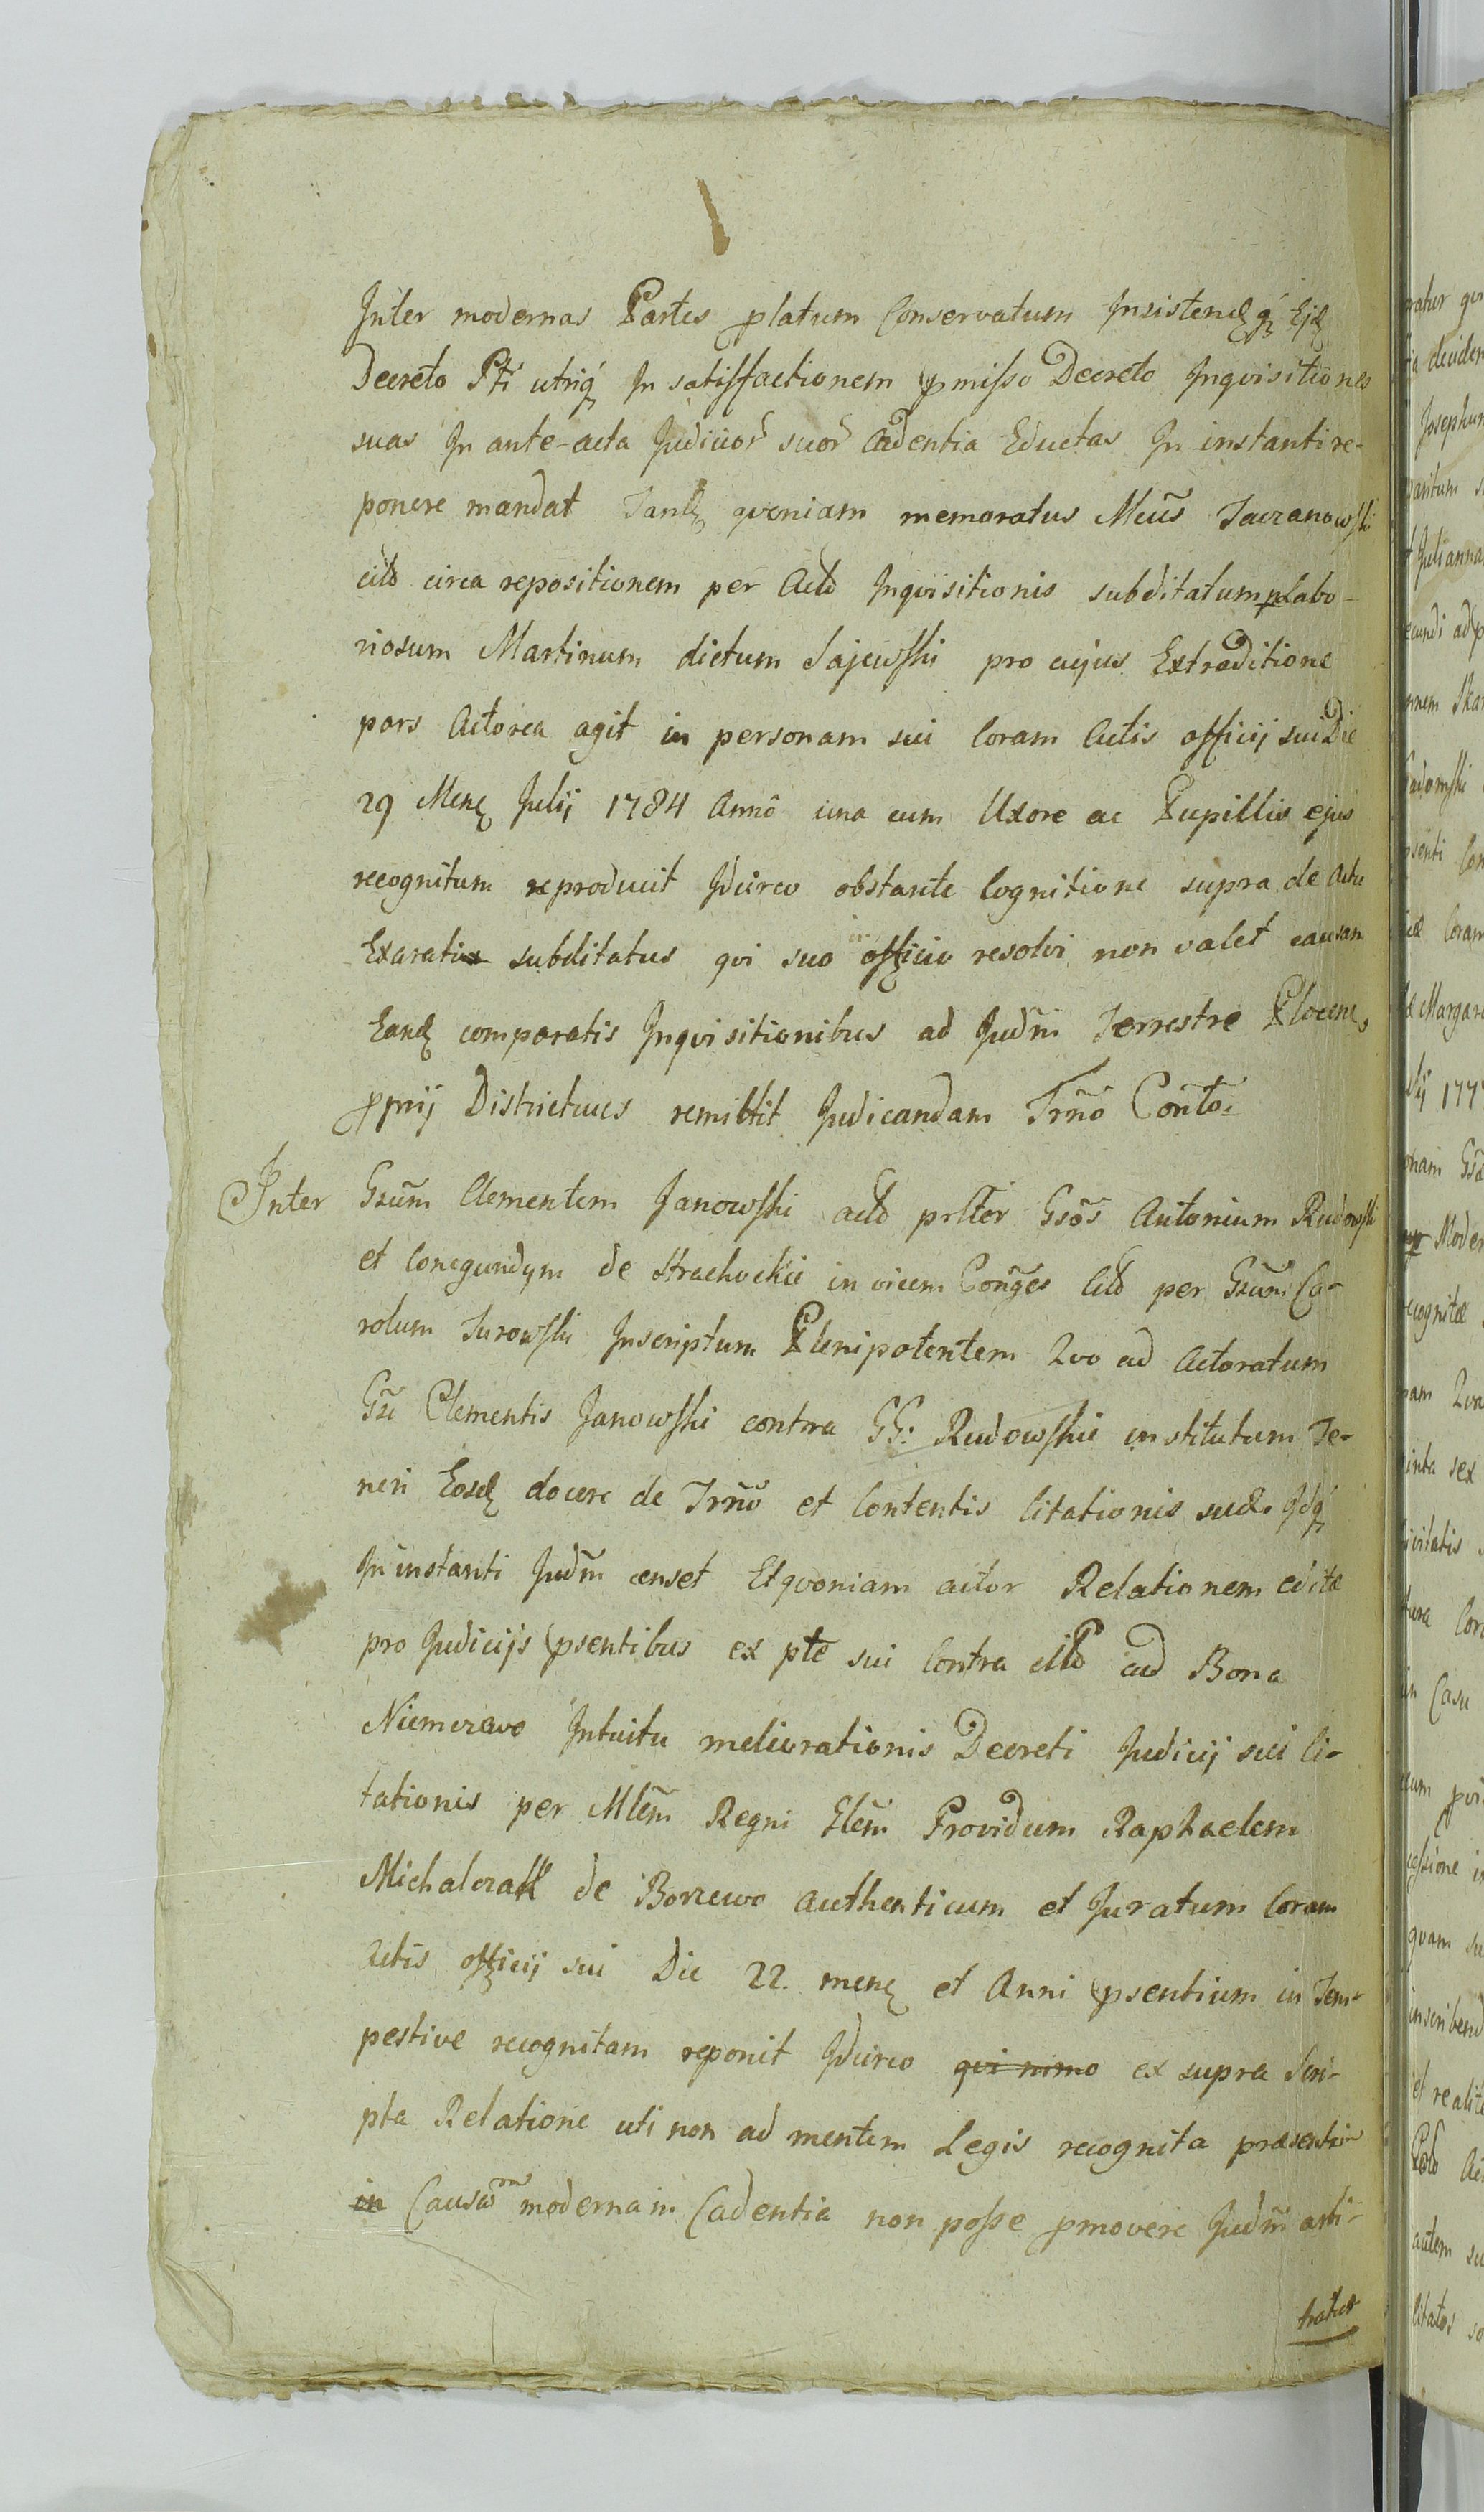 Inter modernas Partes platum Conservatum Insistendq́ Ejd
Decreto Pti utriq́ In satisfactionem pmisso Decreto Inqvisitiones
suas In ante-acta Judicior suor Cadentia Eductas In instanti re-
ponere mandat Tand qvoniam memoratus Mcus Taczanowski
citd circa repositionem per Actd Inqvisitionis subditatum plabo-
riosum Martinum dictum Sajewski pro cujus Extraditione
pars Actorea agit in personam sui Coram Actis officij sui Die
29 Mens Julij 1784 Annô una cum Uxore ac Pupillis ejus
recognitum reproducit Idcirco obstante Cognitione supra de Actu
Exarati subditatus qvi suo in officio resolvi non valet causam
Eand comparatis Inqvisitionibus ad Judm Terrestre Plocens
pprij Districtuus remittit Judicandam Trño Conto:
Inter Gsum Clementem Janowski actd prlter Gsos Antonium Rudowski
et Conegundym de Strachockie in vicem Conges Citd per Gsum Ca-
rolum Turowski Inscriptum Plenipotentem Qvo ad Actoratum
Gsi Clementis Janowski contra GG: Rudowskie institutum Te-
neri Eosd docere de Trño et Contentis Citationis suæ Idq́
In instanti Judm censet Et qvoniam actor Relationem editæ
pro Judicijs psentibus ex pte sui Contra citd ad Bona
Niemirzewo Intuitu meliorationis Decreti Judicij sui Ci-
tationis per Mlem Regni Glem Providum Raphaelem
Michalczak de Borzewo authenticum et Juratum Coram
Actis officij sui Die 22. mens et Anni psentium in Tem-
pestive recognitam reponit Idcirco qvi nimo ex supra scri-
pta Relatione uti non ad mentem Legis recognita præsentim
in Causam modernam Cadentia non posse pmovere Judm arbi-
tratur